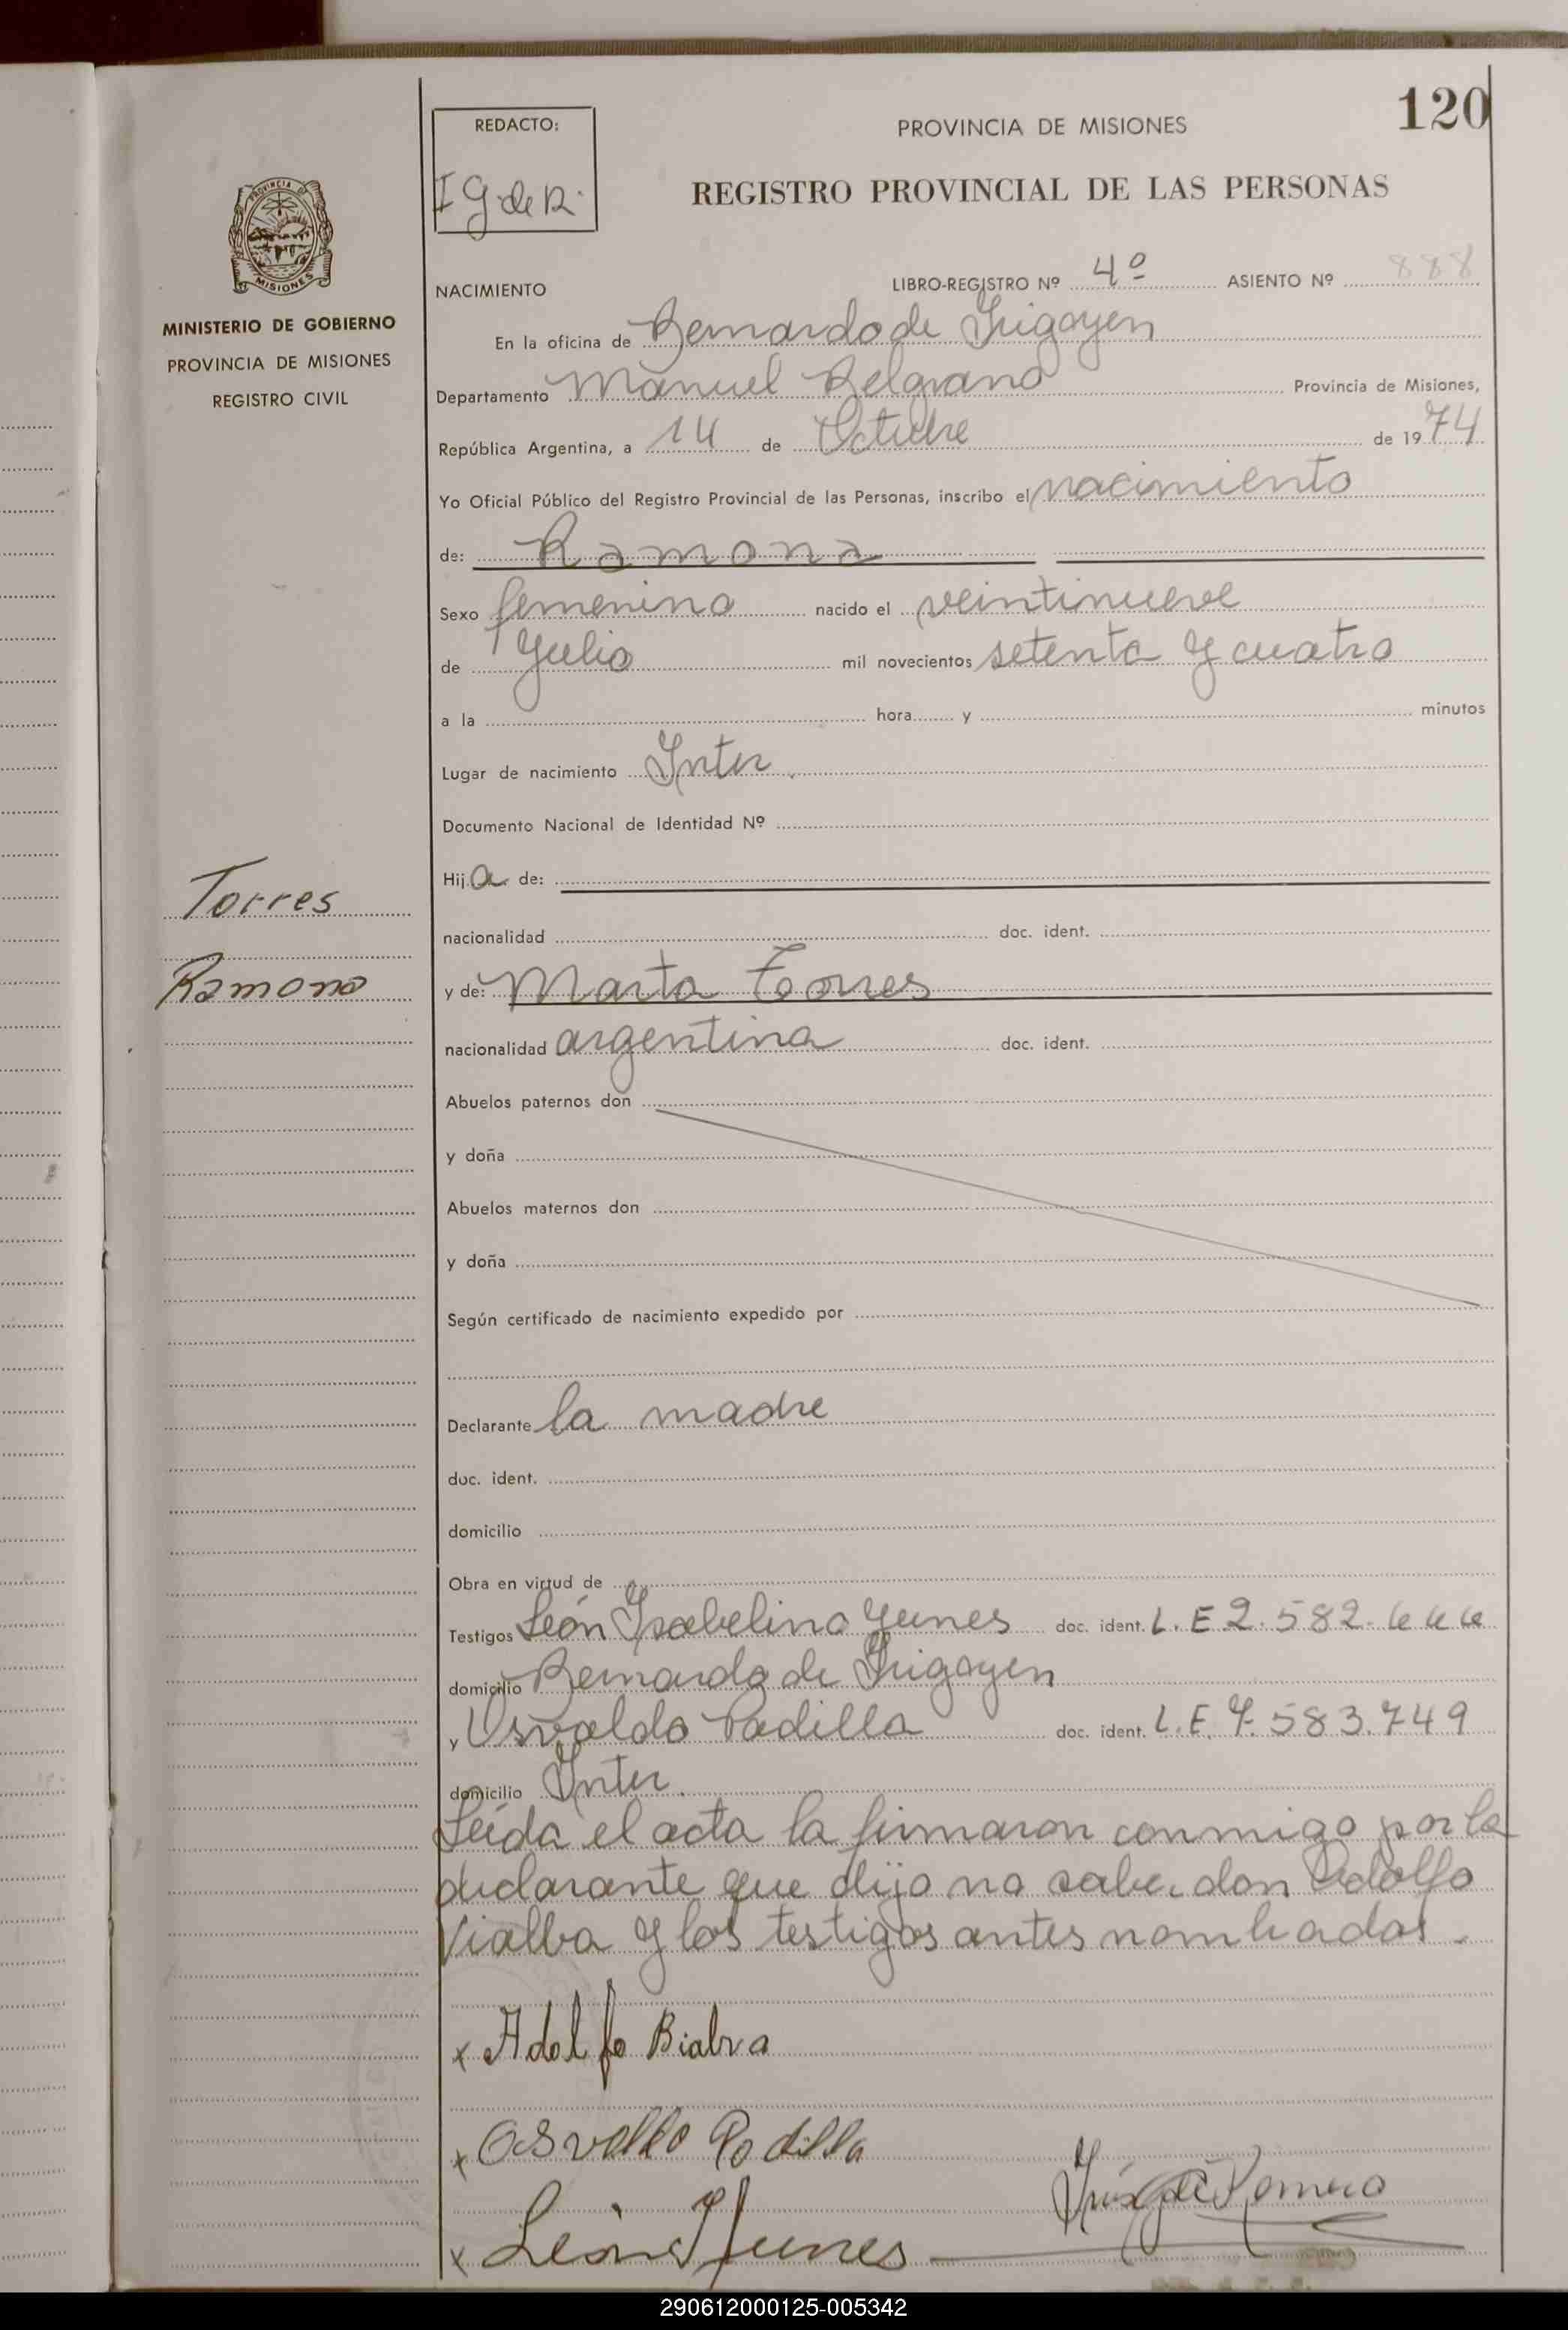 120
REDACTO:
I G. de R.
PROVINCIA DE MISIONES
REGISTRO PROVINCIAL DE LAS PERSONAS
PROVINCIA DE
MISIONES
MINISTERIO DE GOBIERNO
PROVINCIA DE MISIONES
REGISTRO CIVIL
NACIMIENTO LIBRO-REGISTRO Nº 4º ASIENTO Nº 888
En la oficina de Bernardo de Irigoyen
Departamento Manuel Belgrano Provincia de Misiones,
República Argentina, a 14 de Octubre de 1974
Yo Oficial Público del Registro Provincial de las Personas, inscribo el nacimiento
de: Ramona
Sexo femenino nacido el veintinueve
de Julio mil novecientos setenta y cuatro
a la hora y minutos
Lugar de nacimiento Inter.
Documento Nacional de Identidad Nº
Hija de:
Torres
nacionalidad doc. ident.
Ramona
y de: Marta Torres
nacionalidad argentina doc. ident.
Abuelos paternos don
y doña
Abuelos maternos don
y doña
Según certificado de nacimiento expedido por
Declarante la madre
doc. ident.
domicilio
Obra en virtud de
Testigos León Isabelino Yunes doc. ident. L.E 2.582.666
domicilio Bernardo de Irigoyen
y Osvaldo Padilla doc. ident. L.E. 7.583.749
domicilio Inter.
Leída el acta la firmaron conmigo por la
declarante que dijo no saber don Adolfo
Vialba y los testigos antes nombrados.
x Adolfo Bialva
x Osvaldo Padilla
x León I Yunes
290612000125-005342